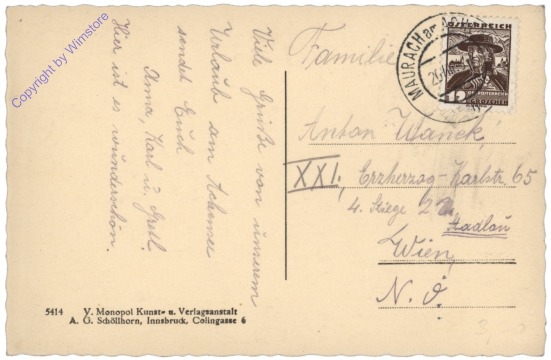 Copyright by Wimstore
Viele Grüße von unserem
Urlaub am Achensee
sendet Euch
Anna, Karl u. Gretl.
Hier ist es wunderschön.
Familie
Anton Wanek
XXI. Erzherzog-Karlstr. 65
4. Stiege 22
Stadlau
Wien
N. Ö.
MAURACH am ACHENSEE
ÖSTERREICH
12
GROSCHEN
5414 V. Monopol Kunst- u. Verlagsanstalt
A. G. Schöllhorn, Innsbruck, Colingasse 6